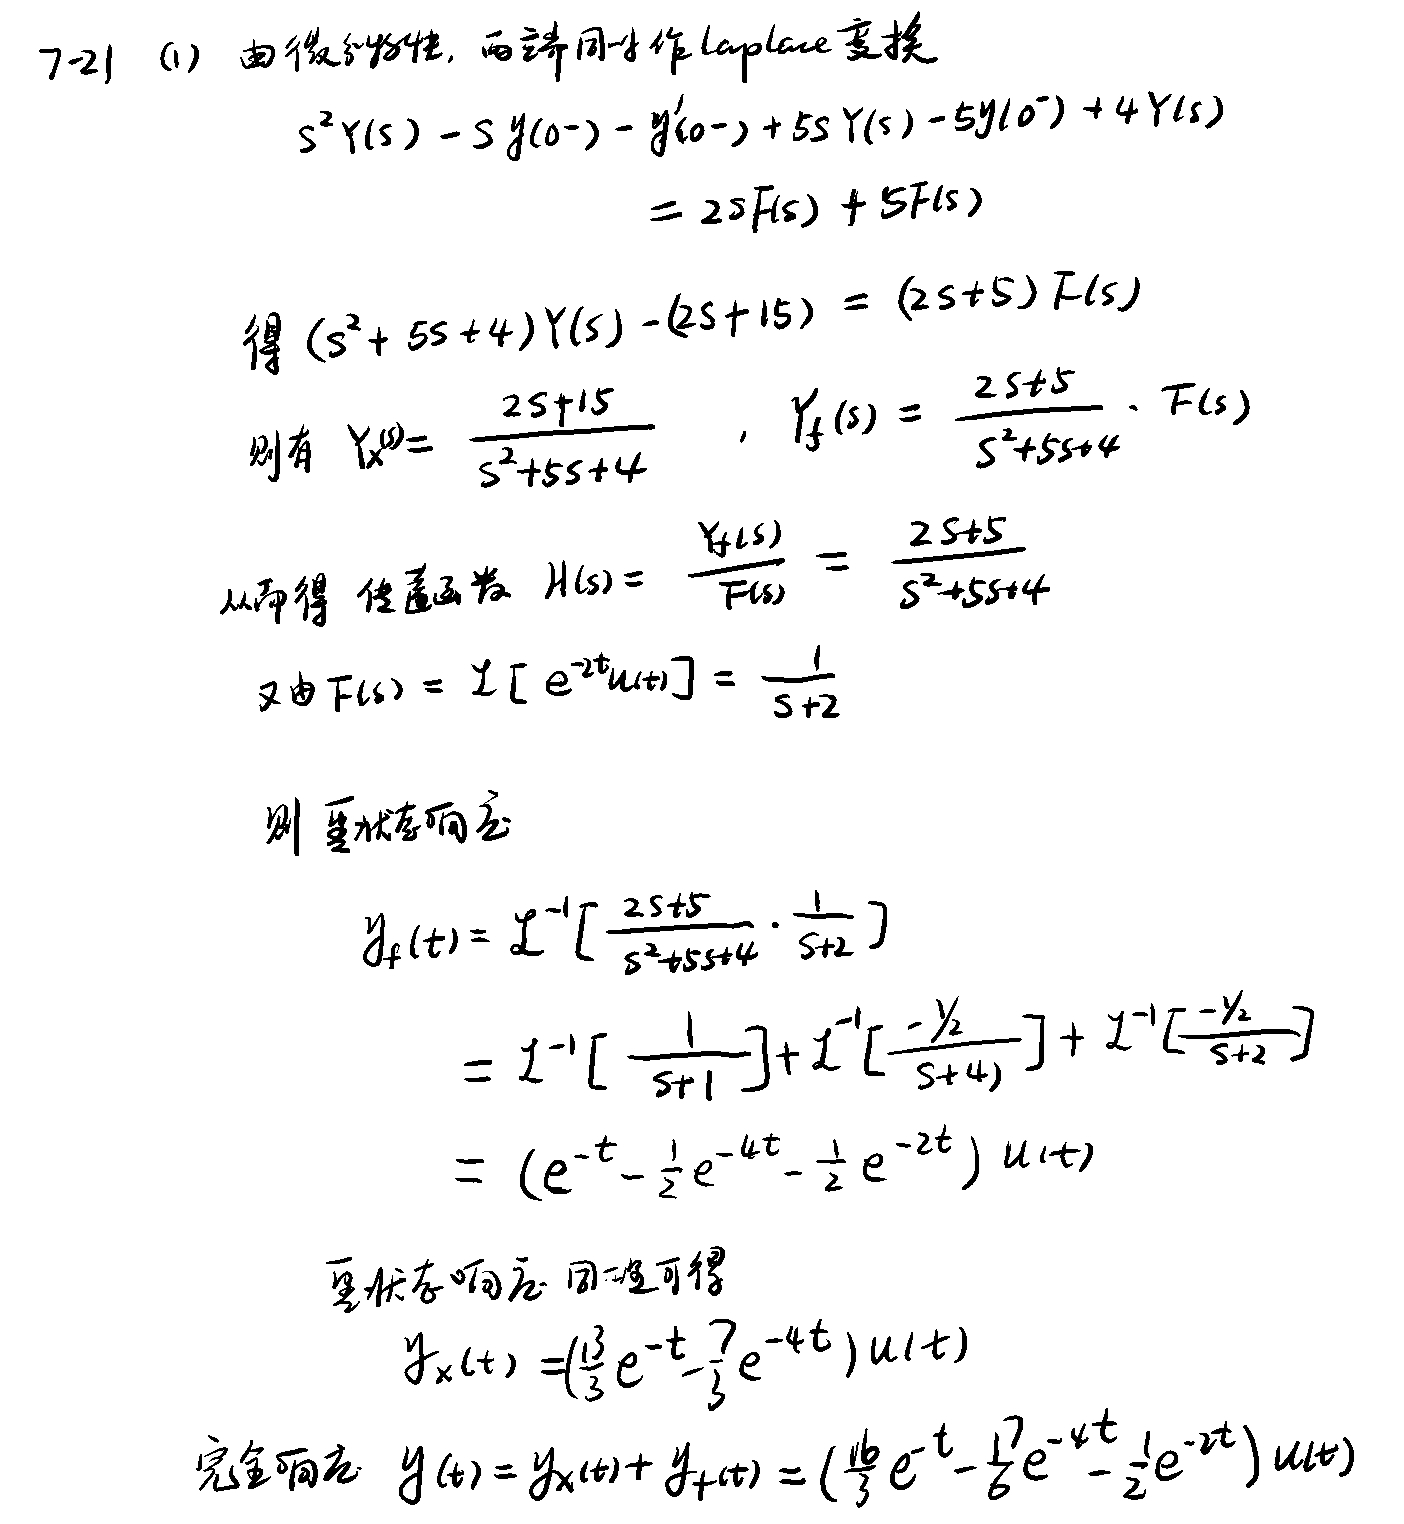 7-21 (1) 由微分特性, 两端同时作Laplace变换
s²Y(s) - sy(0-) - y'(0-) + 5sY(s) - 5y(0-) + 4Y(s)
= 2sF(s) + 5F(s)
得 (s²+5s+4)Y(s) - (2s+15) = (2s+5)F(s)
则有 Yx(s) = (2s+15)/(s²+5s+4) , Yf(s) = (2s+5)/(s²+5s+4) · F(s)
从而得 传递函数 H(s) = Yf(s)/F(s) = (2s+5)/(s²+5s+4)
又由F(s) = ℒ[e^(-2t)u(t)] = 1/(s+2)
则零状态响应
yf(t) = ℒ⁻¹[(2s+5)/(s²+5s+4) · 1/(s+2)]
= ℒ⁻¹[1/(s+1)] + ℒ⁻¹[(-1/2)/(s+4)] + ℒ⁻¹[(-1/2)/(s+2)]
= (e^(-t) - 1/2 e^(-4t) - 1/2 e^(-2t)) u(t)
零状态响应 同理可得
yx(t) = (13/3 e^(-t) - 7/3 e^(-4t)) u(t)
完全响应 y(t) = yx(t) + yf(t) = (16/3 e^(-t) - 17/6 e^(-4t) - 1/2 e^(-2t)) u(t)